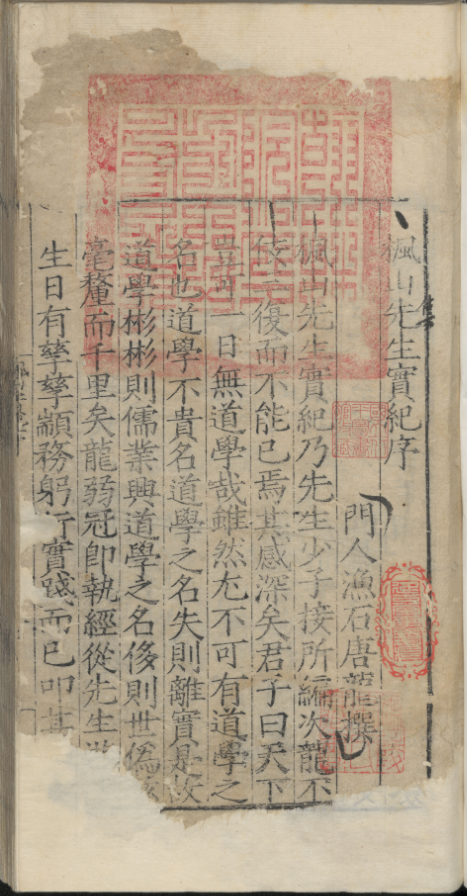 楓山先生實紀序
門人漁石唐龍撰
楓山先生實紀乃先生少子接所編次龍不
佞三復而不能已焉其感深矣君子曰天下
豈可一日無道學哉雖然尤不可有道學之
名也道學不貴名道學之名失則離實是故
道學彬彬則儒業興道學之名侈則世偽
毫釐而千里矣龍弱冠即執經從先生
生日有孳孳顓務躬行實踐而已叩其